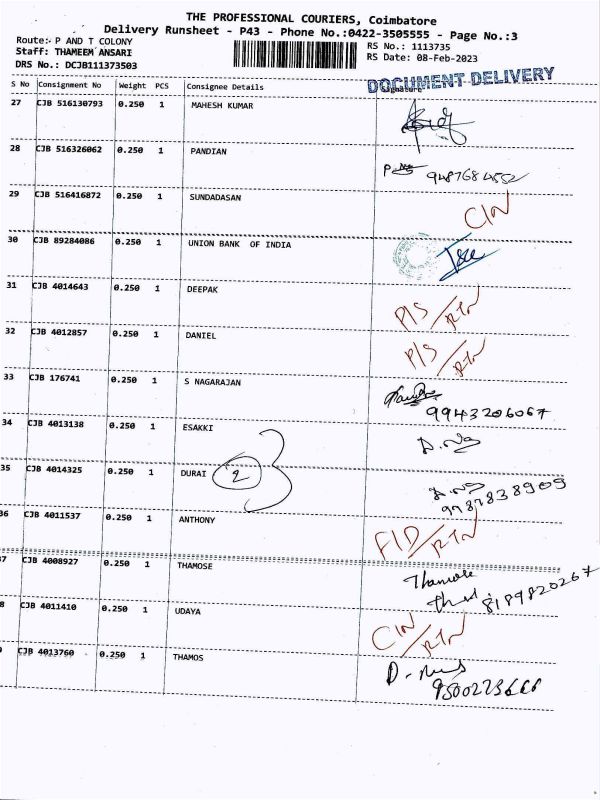 THE PROFESSIONAL COURIERS, Coimbatore
Delivery Runsheet - P43 - Phone No.:0422-3505555 - Page No.:3
Route:- P AND T COLONY
Staff: THAMEEM ANSARI
DRS No.: DCJB111373503
RS No.: 1113735
RS Date: 08-Feb-2023
DOCUMENT DELIVERY
S No Consignment No Weight PCS Consignee Details Signature
27 CJB 516130793 0.250 1 MAHESH KUMAR
28 CJB 516326062 0.250 1 PANDIAN
9487684552
29 CJB 516416872 0.250 1 SUNDADASAN C/N
30 CJB 89284086 0.250 1 UNION BANK OF INDIA
31 CJB 4014643 0.250 1 DEEPAK P/S/RTN
32 CJB 4012857 0.250 1 DANIEL P/S/RTN
33 CJB 176741 0.250 1 S NAGARAJAN
9943206067
34 CJB 4013138 0.250 1 ESAKKI
35 CJB 4014325 0.250 1 DURAI 2
9787838909
36 CJB 4011537 0.250 1 ANTHONY F/D/RTN
7 CJB 4008927 0.250 1 THAMOSE Thamose
8189820267
8 CJB 4011410 0.250 1 UDAYA C/N/RTN
9 CJB 4013760 0.250 1 THAMOS